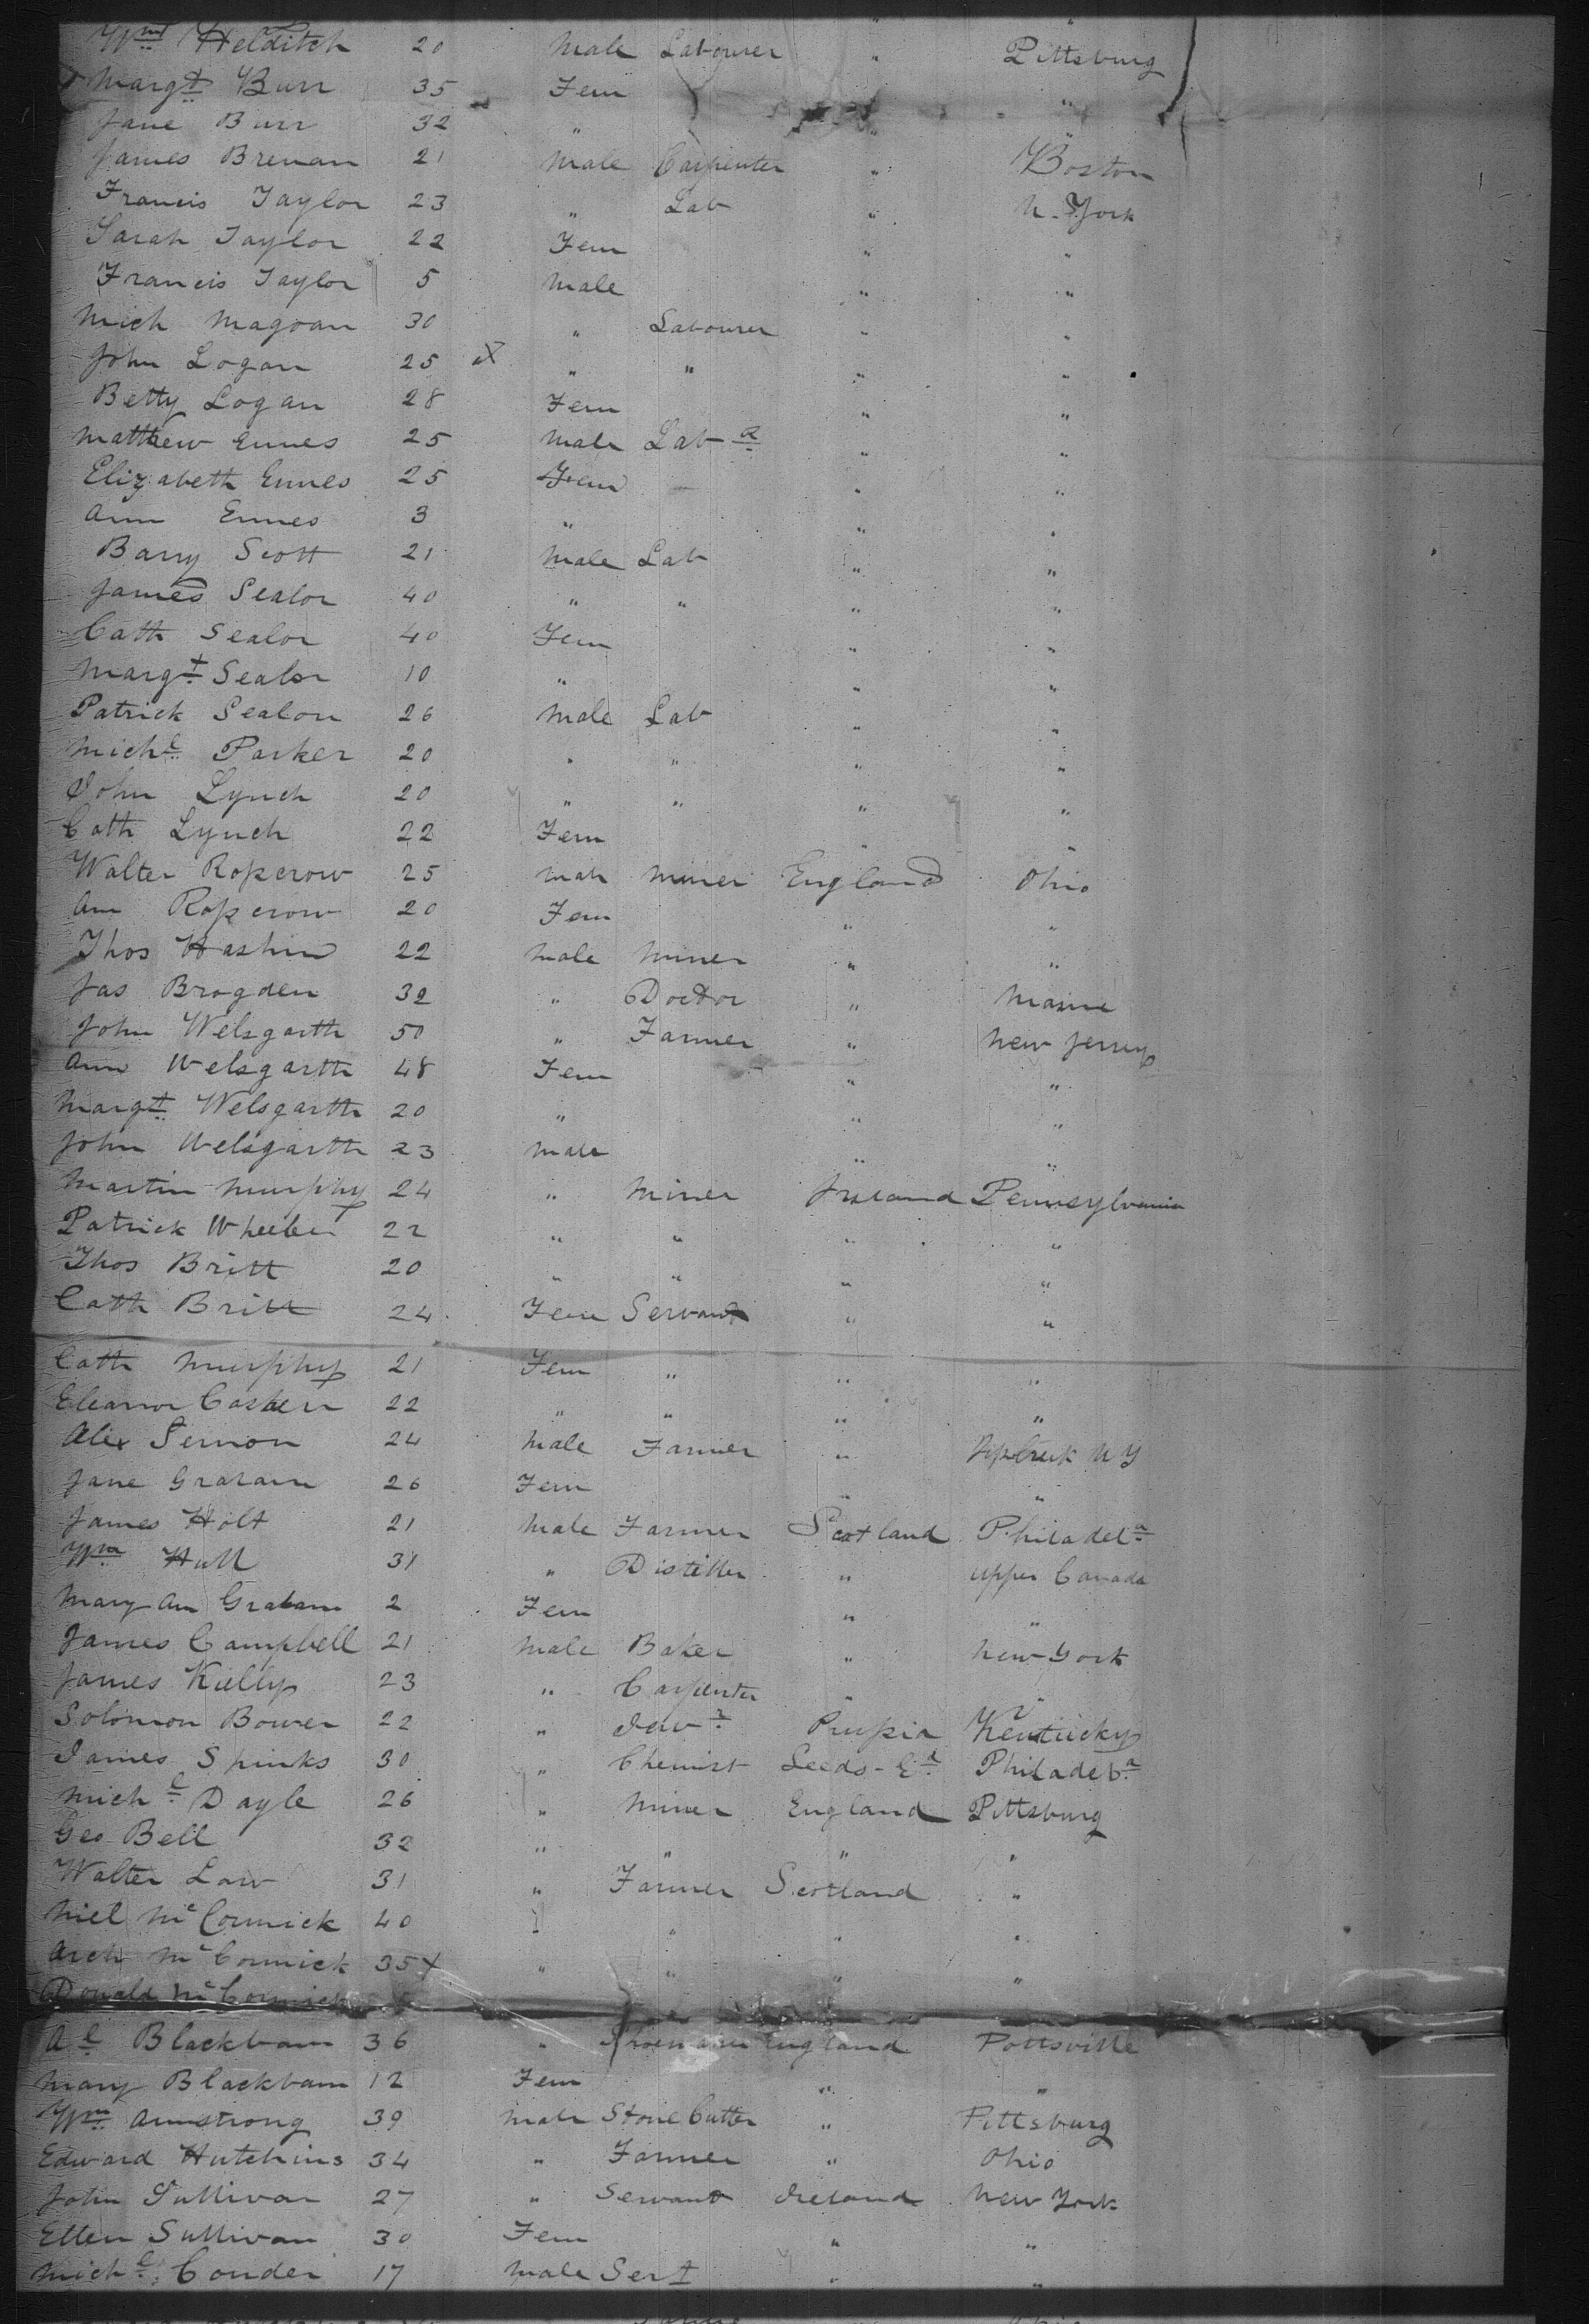 Wm Helditch 20 Male Labourer " Pittsburg
Margt Burr 35 Fem "
Jane Burr 32 " " "
James Brenan 21 Male Carpenter " Boston
Francis Taylor 23 " Lab " N. York
Sarah Taylor 22 Fem " "
Francis Taylor 5 Male " "
Mich Magoan 30 " Labourer " "
John Logan 25 X " " " "
Betty Logan 28 Fem " "
Matthew Ennes 25 Male Labr " "
Elizabeth Ennes 25 Fem " "
Ann Ennes 3 " " "
Barry Scott 21 Male Lab " "
James Sealor 40 " " " "
Cath Sealor 40 Fem " "
Margt Sealor 10 " " "
Patrick Sealon 26 Male Lab " "
Michl Parker 20 " " " "
John Lynch 20 " " " "
Cath Lynch 22 Fem " "
Walter Roperow 25 Male Miner England Ohio
Ann Roperow 20 Fem " "
Thos Haskin 22 Male Miner " "
Jas Brogden 32 " Doctor " Maine
John Welsgarth 50 " Farmer " New Jersey
Ann Welsgarth 48 Fem " "
Margt Welsgarth 20 " " "
John Welsgarth 23 Male " "
Martin Murphy 24 " Miner Ireland Pennsylvania
Patrick Wheeler 22 " " " "
Thos Britt 20 " " " "
Cath Britt 24 Fem Servant " "
Cath Murphy 21 Fem " " "
Eleanor Costken 22 " " " "
Alex Semon 24 Male Farmer " N Y
Jane Graham 26 Fem " "
James Holt 21 Male Farmer Scotland Philadela
Wm Hull 31 " Distiller " Upper Canada
Mary Ann Graham 2 Fem " "
James Campbell 21 Male Baker " New York
James Kielly 23 " Carpenter " "
Solomon Bower 22 " Jewr Prussia Kentucky
James Spinks 30 " Chemist Leeds-Ed Philadela
Michl Dayle 26 " Miner England Pittsburg
Geo Bell 32 " " " "
Walter Law 31 " Farmer Scotland "
Niel McCormick 40 " " " "
Arch McCormick 35 X " " " "
Donald McCormick
Al Blackbam 36 " Shoemaker England Pottsville
Mary Blackbam 12 Fem " "
Wm Armstrong 39 Male Stone Cutter " Pittsburg
Edward Hutchins 34 " Farmer " Ohio
John Sullivan 27 " Servant Ireland New York
Ellen Sullivan 30 Fem " "
Michl Conder 17 Male Sert " "